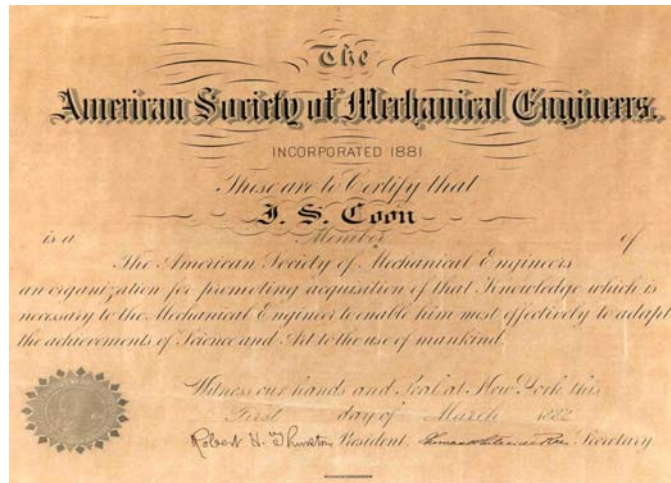 The
American Society of Mechanical Engineers.
INCORPORATED 1881.
These are to Certify that
J. S. Coon
is a Member of
The American Society of Mechanical Engineers
an organization for promoting acquisition of that Knowledge which is
necessary to the Mechanical Engineer to enable him most effectively to adapt
the achievements of Science and Art to the use of mankind.
Witness our hands and Seal at New York this
First day of March 1882
Robert H. Thurston President. Secretary